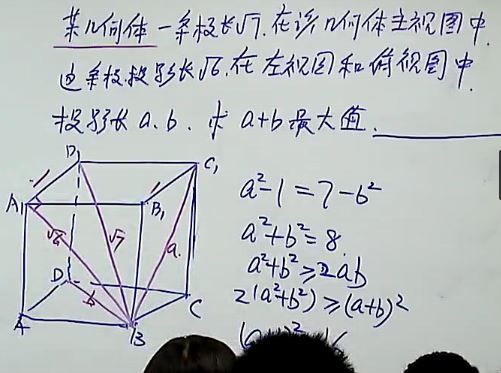 某几何体一条棱长√7.在该几何体主视图中
这条棱投影长√6.在左视图和俯视图中
投影长a.b.求a+b最大值.
D₁
C₁
A₁
B₁
√6
√7
a
D
b
C
A
B
a²-1=7-b²
a²+b²=8
a²+b²≥2ab
2(a²+b²)≥(a+b)²